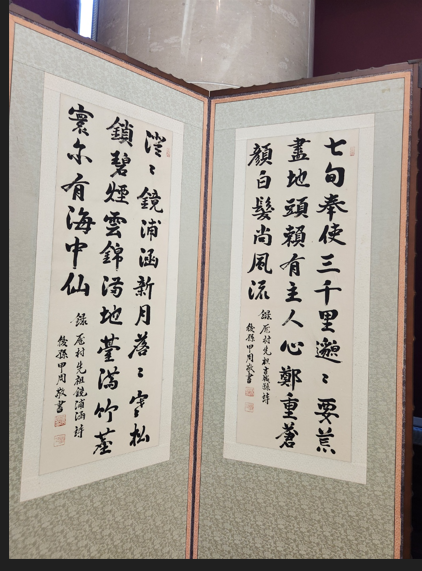 七旬奉使三千里邈〻要荒
盡地頭賴有主人心鄭重蒼
顔白髮尚風流
錄 厖村先祖詩
後孫甲周敬書
澄〻鏡浦涵新月落〻寒松
鎖碧煙雲錦滿地臺滿竹塵
寰亦有海中仙
錄 厖村先祖鏡浦涵詩
後孫甲周敬書